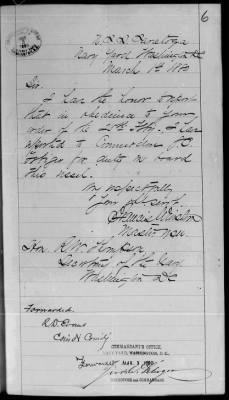 6
U.S.S. Saratoga
Navy Yard Washington DC
March 1st
Sir.
I have the honor to report
that in obedience to your
order of the 25th Feby. I have
reported to Commander
for duty on board
this vessel.
Very respectfully
Your obt. servt.
Francis Winslow
Master USN.
Hon. R.W. Thompson
Secretary of the Navy
Washington DC
Forwarded
R.D. Evans
COMMANDANT'S OFFICE,
NAVY YARD, WASHINGTON, D.C.,
Forwarded MAR 3
COMMODORE AND COMMANDANT